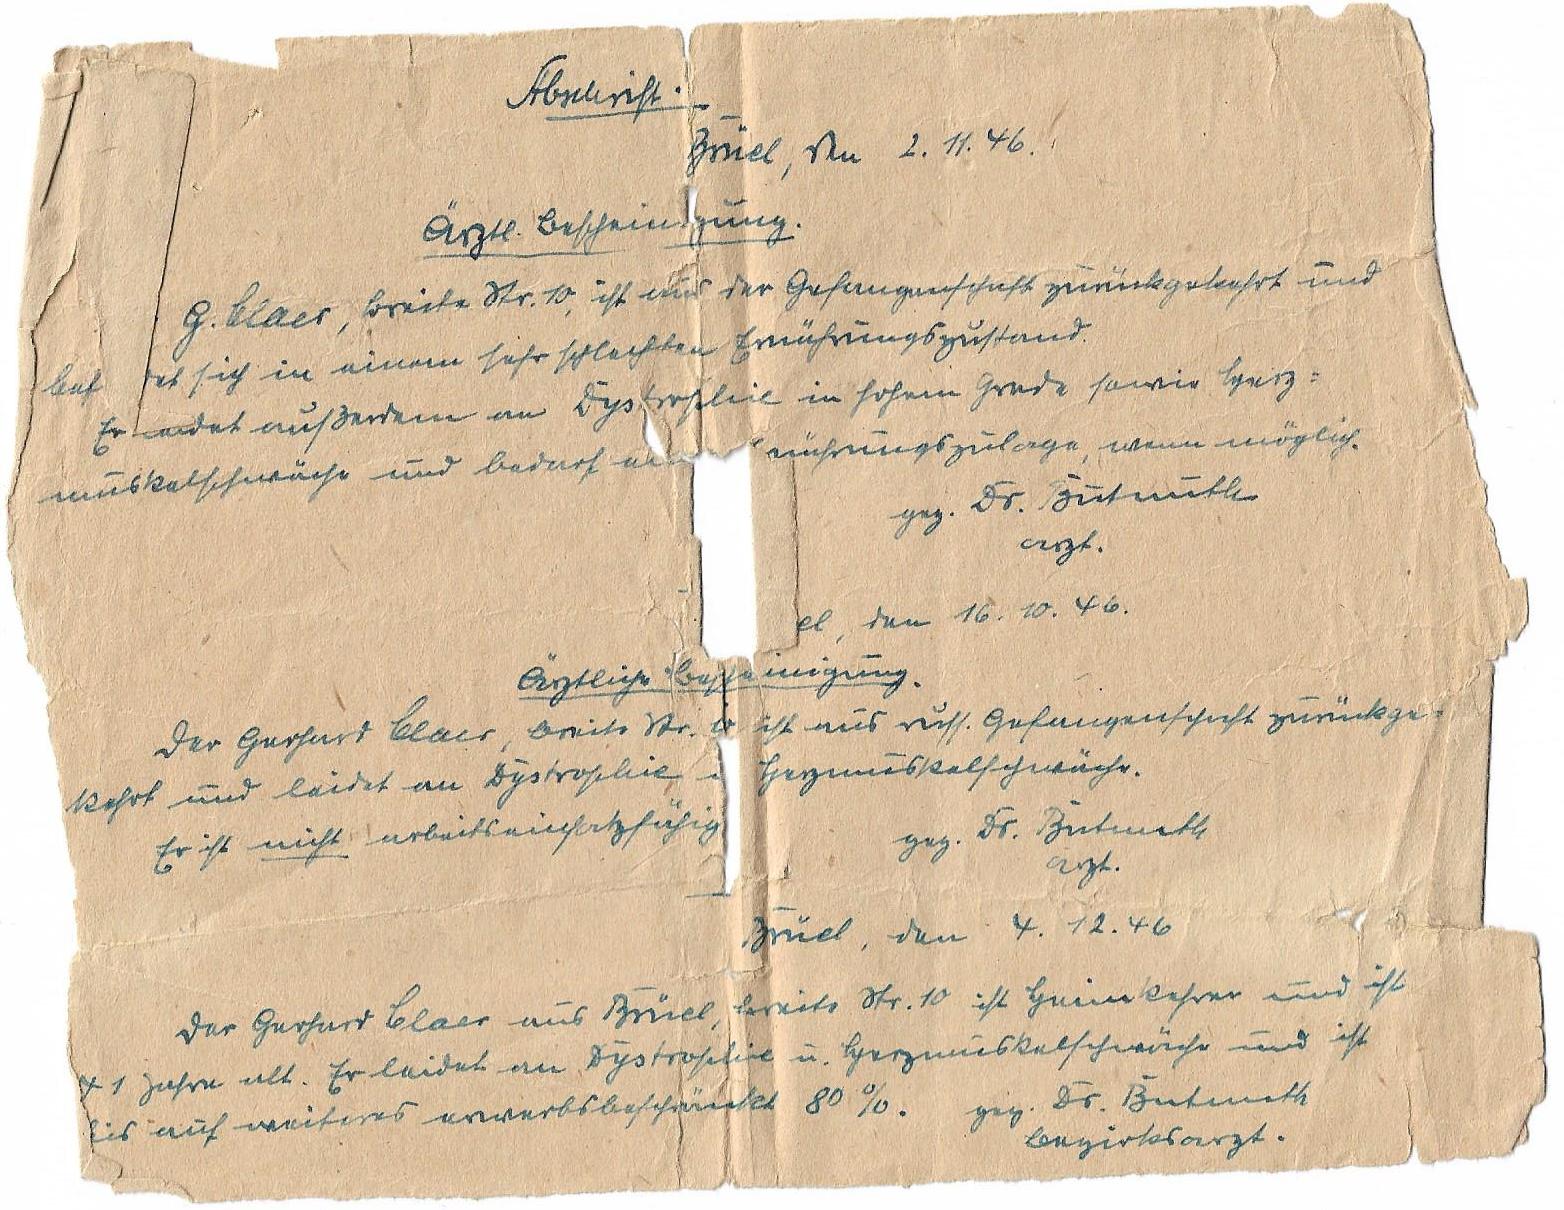 Abschrift.
Brüel, den 2.11.46.
Ärztl. Bescheinigung.
G. Claer, Breite Str. 10, ist aus der Gefangenschaft zurückgekehrt und
bef det sich in einem sehr schlechten Ernährungszustand.
Er leidet außerdem an Dystrophie in hohem Grade sowie Herz=
muskelschwäche und bedarf nährungszulage, wenn möglich.
gez. Dr.
Arzt.
el, den 16.10.46.
Ärztliche Bescheinigung.
Der Gerhard Claer, Breite Str. 10 ist aus russ. Gefangenschaft zurückge=
kehrt und leidet an Dystrophie Herzmuskelschwäche.
Er ist nicht arbeitseinsatzfähig
gez. Dr.
Arzt.
Brüel, den 4.12.46
Der Gerhard Claer aus Brüel, Breite Str. 10 ist Heimkehrer und ist
41 Jahre alt. Er leidet an Dystrophie u. Herzmuskelschwäche und ist
bis auf weiteres erwerbsbeschränkt 80 %. gez. Dr.
Bezirksarzt.